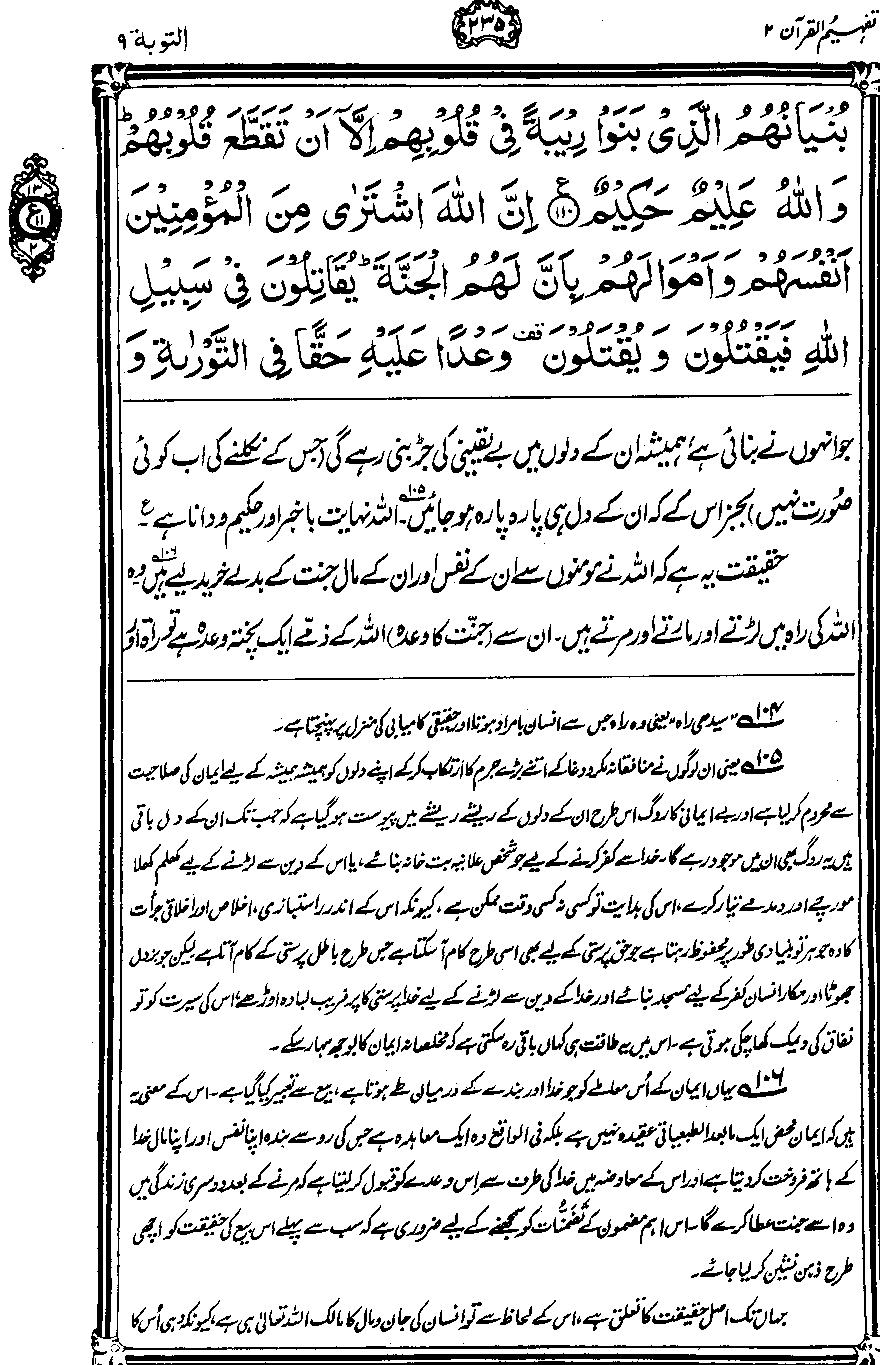 تفہیم القرآن ۲
۲۳۵
التوبة ۹
بُنْيَانُهُمُ الَّذِىْ بَنَوْا رِيْبَةً فِىْ قُلُوْبِهِمْ اِلَّآ اَنْ تَقَطَّعَ قُلُوْبُهُمْ ؕ
وَاللّٰهُ عَلِيْمٌ حَكِيْمٌ ﴿۱۱۰﴾ ع اِنَّ اللّٰهَ اشْتَرٰى مِنَ الْمُؤْمِنِيْنَ
۱۳
ع ۱۱
۲
اَنْفُسَهُمْ وَاَمْوَالَهُمْ بِاَنَّ لَهُمُ الْجَنَّةَ ؕ يُقَاتِلُوْنَ فِىْ سَبِيْلِ
اللّٰهِ فَيَقْتُلُوْنَ وَ يُقْتَلُوْنَ قف وَعْدًا عَلَيْهِ حَقًّا فِى التَّوْرٰىةِ وَ
جو انہوں نے بنائی ہے، ہمیشہ ان کے دلوں میں بے یقینی کی جڑ بنی رہے گی (جس کے نکلنے کی اب کوئی
صُورت نہیں) بجز اس کے کہ ان کے دل ہی پارہ پارہ ہو جائیں۔۱۰۵ اللہ نہایت باخبر اور حکیم و دانا ہے ع
حقیقت یہ ہے کہ اللہ نے مومنوں سے ان کے نفس اور ان کے مال جنت کے بدلے خرید لیے ہیں۱۰۶ وہ
اللہ کی راہ میں لڑتے اور مارتے اور مرتے ہیں۔ ان سے (جنّت کا وعدہ) اللہ کے ذمّے ایک پختہ وعدہ ہے توراۃ اور
۱۰۴ "سیدھی راہ" یعنی وہ راہ جس سے انسان بامراد ہوتا اور حقیقی کامیابی کی منزل پر پہنچتا ہے۔
۱۰۵ یعنی ان لوگوں نے منافقانہ مکر و دغا کے اتنے بڑے جرم کا ارتکاب کر کے اپنے دلوں کو ہمیشہ ہمیشہ کے لیے ایمان کی صلاحیت
سے محروم کر لیا ہے اور بے ایمانی کا روگ اس طرح ان کے دلوں کے ریشے ریشے میں پیوست ہو گیا ہے کہ جب تک ان کے دل باقی
ہیں یہ روگ بھی ان میں موجود رہے گا۔ خدا سے کفر کرنے کے لیے جو شخص علانیہ بت خانہ بنائے، یا اس کے دین سے لڑنے کے لیے کھلم کھلا
مورچے اور دمدمے تیار کرے، اس کی ہدایت تو کسی نہ کسی وقت ممکن ہے، کیونکہ اس کے اندر راستبازی، اخلاص اور اخلاقی جرأت
کا وہ جوہر تو بنیادی طور پر محفوظ رہتا ہے جو حق پرستی کے لیے بھی اسی طرح کام آ سکتا ہے جس طرح باطل پرستی کے کام آتا ہے لیکن جو بزدل
جھوٹا اور مکار انسان کفر کے لیے مسجد بنائے اور خدا کے دین سے لڑنے کے لیے خدا پرستی کا پر فریب لبادہ اوڑھے، اس کی سیرت کو تو
نفاق کی دیمک کھا چکی ہوتی ہے۔ اس میں یہ طاقت ہی کہاں باقی رہ سکتی ہے کہ مخلصانہ ایمان کا بوجھ سہار سکے۔
۱۰۶ یہاں ایمان کے اُس معاملے کو جو خدا اور بندے کے درمیان طے ہوتا ہے، بیع سے تعبیر کیا گیا ہے۔ اس کے معنی یہ
ہیں کہ ایمان محض ایک مابعد الطبیعیاتی عقیدہ نہیں ہے بلکہ فی الواقع وہ ایک معاہدہ ہے جس کی رو سے بندہ اپنا نفس اور اپنا مال خدا
کے ہاتھ فروخت کر دیتا ہے اور اس کے معاوضہ میں خدا کی طرف سے اِس وعدے کو قبول کر لیتا ہے کہ مرنے کے بعد دوسری زندگی میں
وہ اسے جنت عطا کرے گا۔ اس اہم مضمون کے تضمُّنات کو سمجھنے کے لیے ضروری ہے کہ سب سے پہلے اس بیع کی حقیقت کو اچھی
طرح ذہن نشین کر لیا جائے۔
جہاں تک اصل حقیقت کا تعلق ہے، اس کے لحاظ سے تو انسان کی جان و مال کا مالک اللہ تعالیٰ ہی ہے، کیونکہ وہی اُس کا